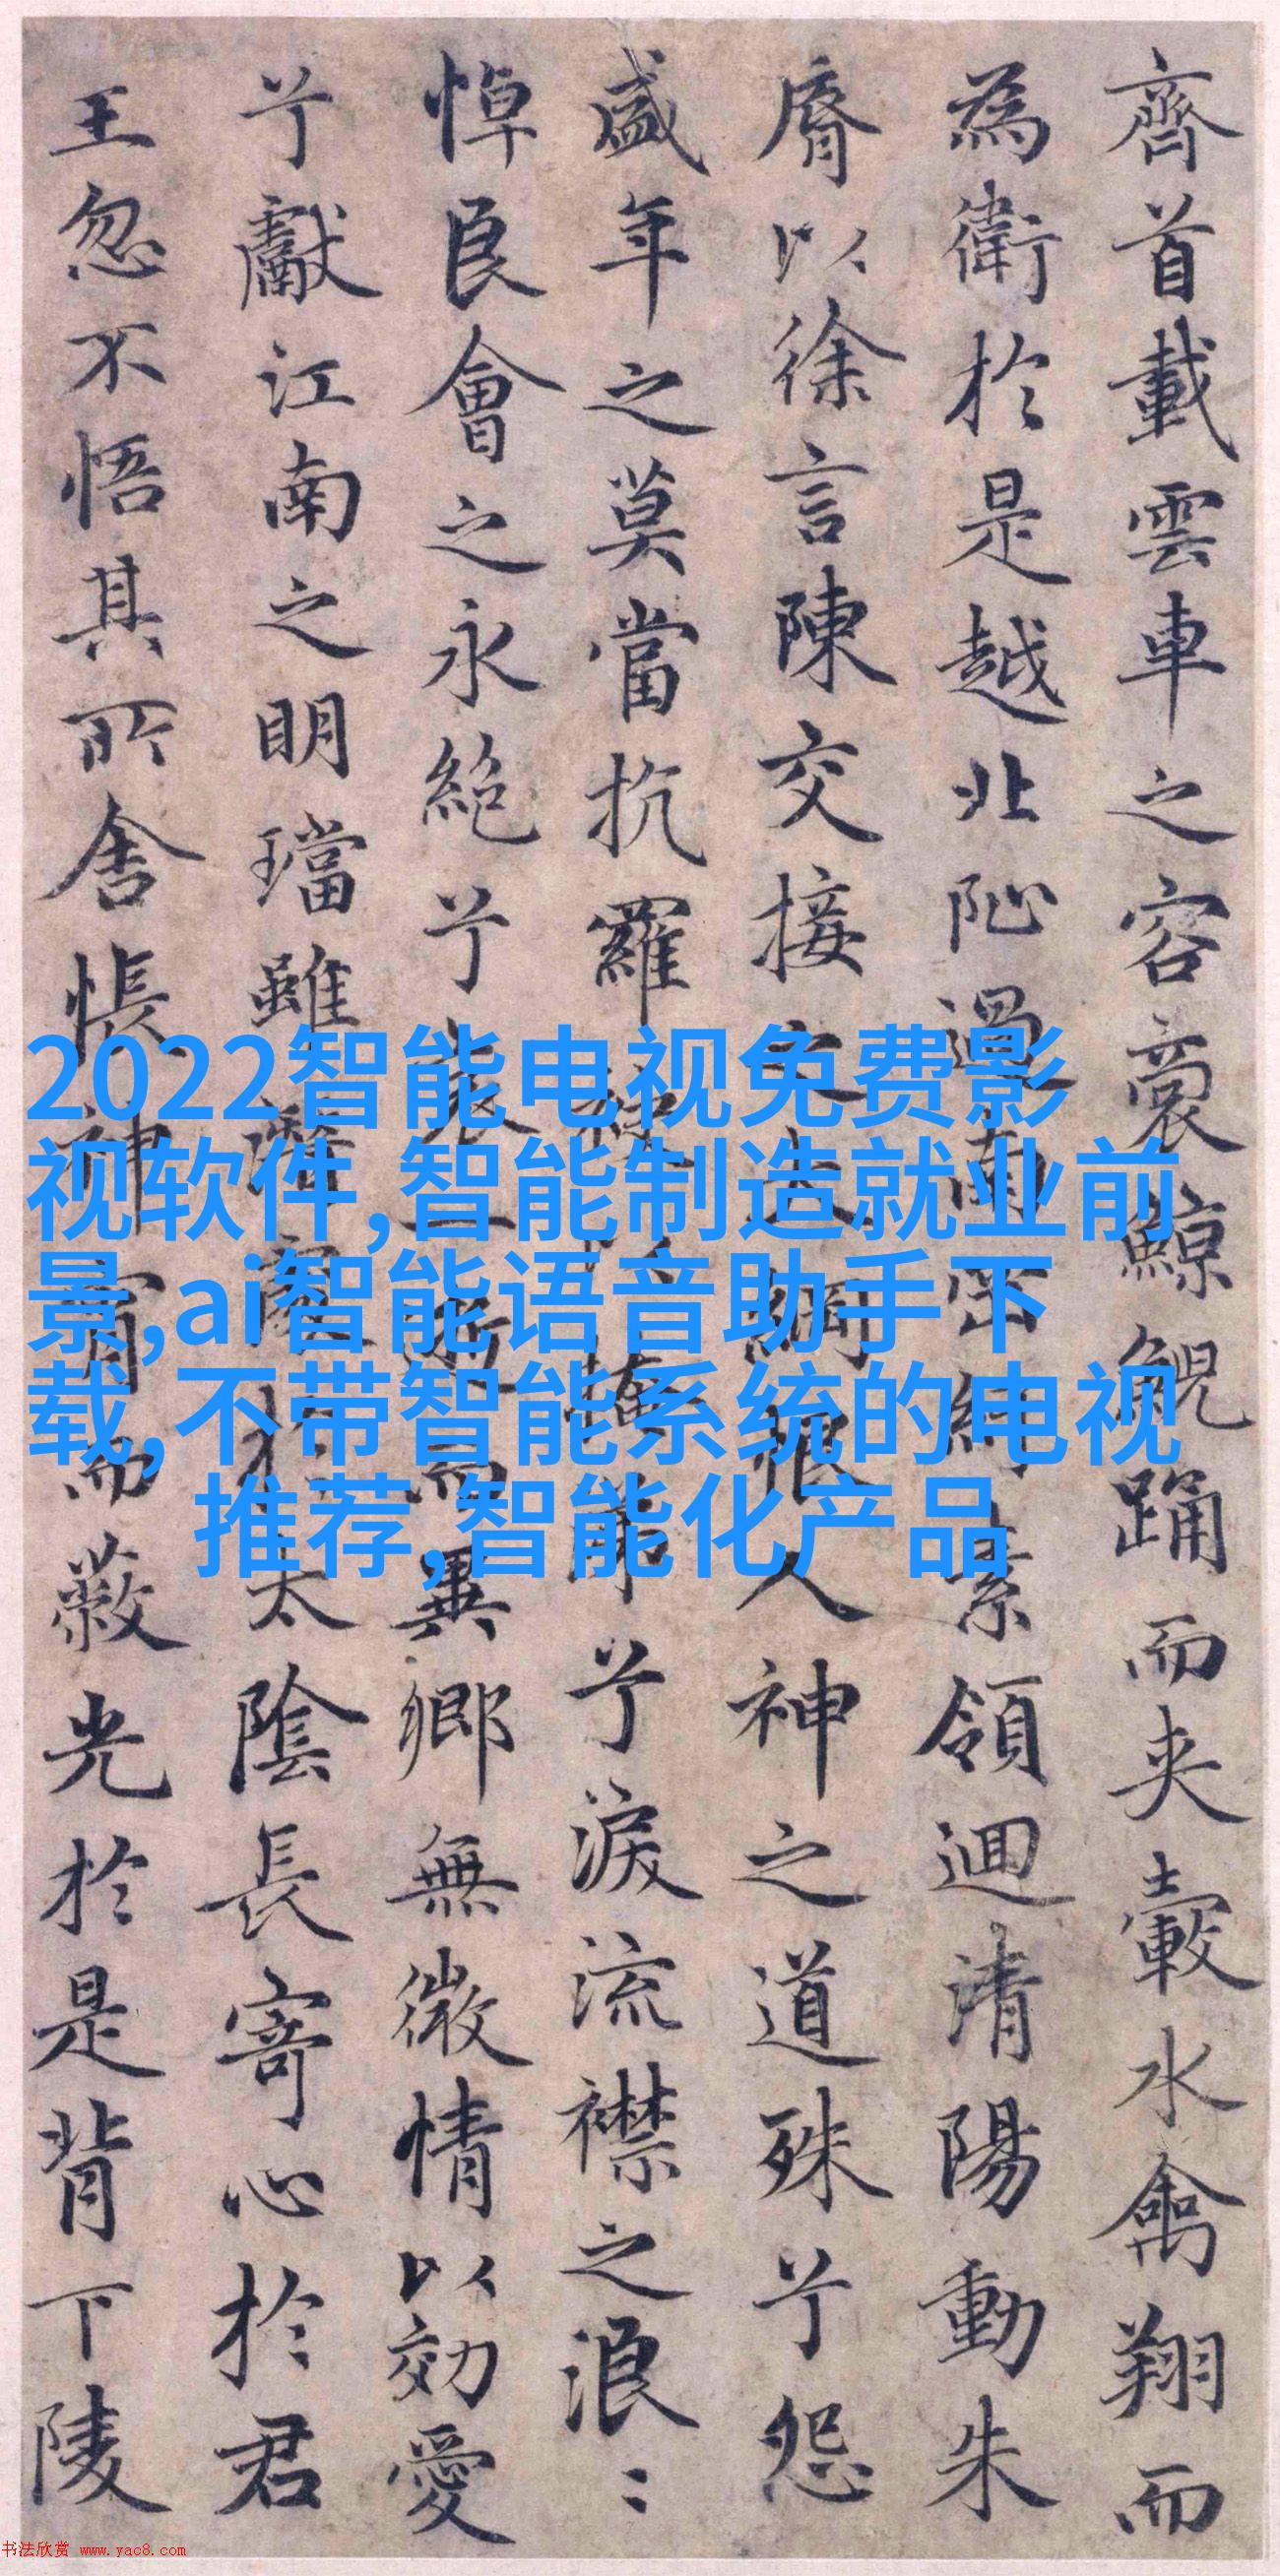 齊首載雲車之容裔鯨鯢踊而夾轂水禽翔而
為衛於是越北沚過南岡紆素領迴清陽動朱
脣以徐言陳交接之大綱恨人神之道殊兮怨
盛年之莫當抗羅袂以掩涕兮淚流襟之浪〻
悼良會之永絕兮哀一逝而異鄉無微情以効愛
兮獻江南之明璫雖潛處於太陰長寄心於君
王忽不悟其所舍悵神宵而蔽光於是背下陵
2022智能电视免费影
视软件,智能制造就业前
景,ai智能语音助手下
载,不带智能系统的电视
推荐,智能化产品
书法欣赏 www.yac8.com